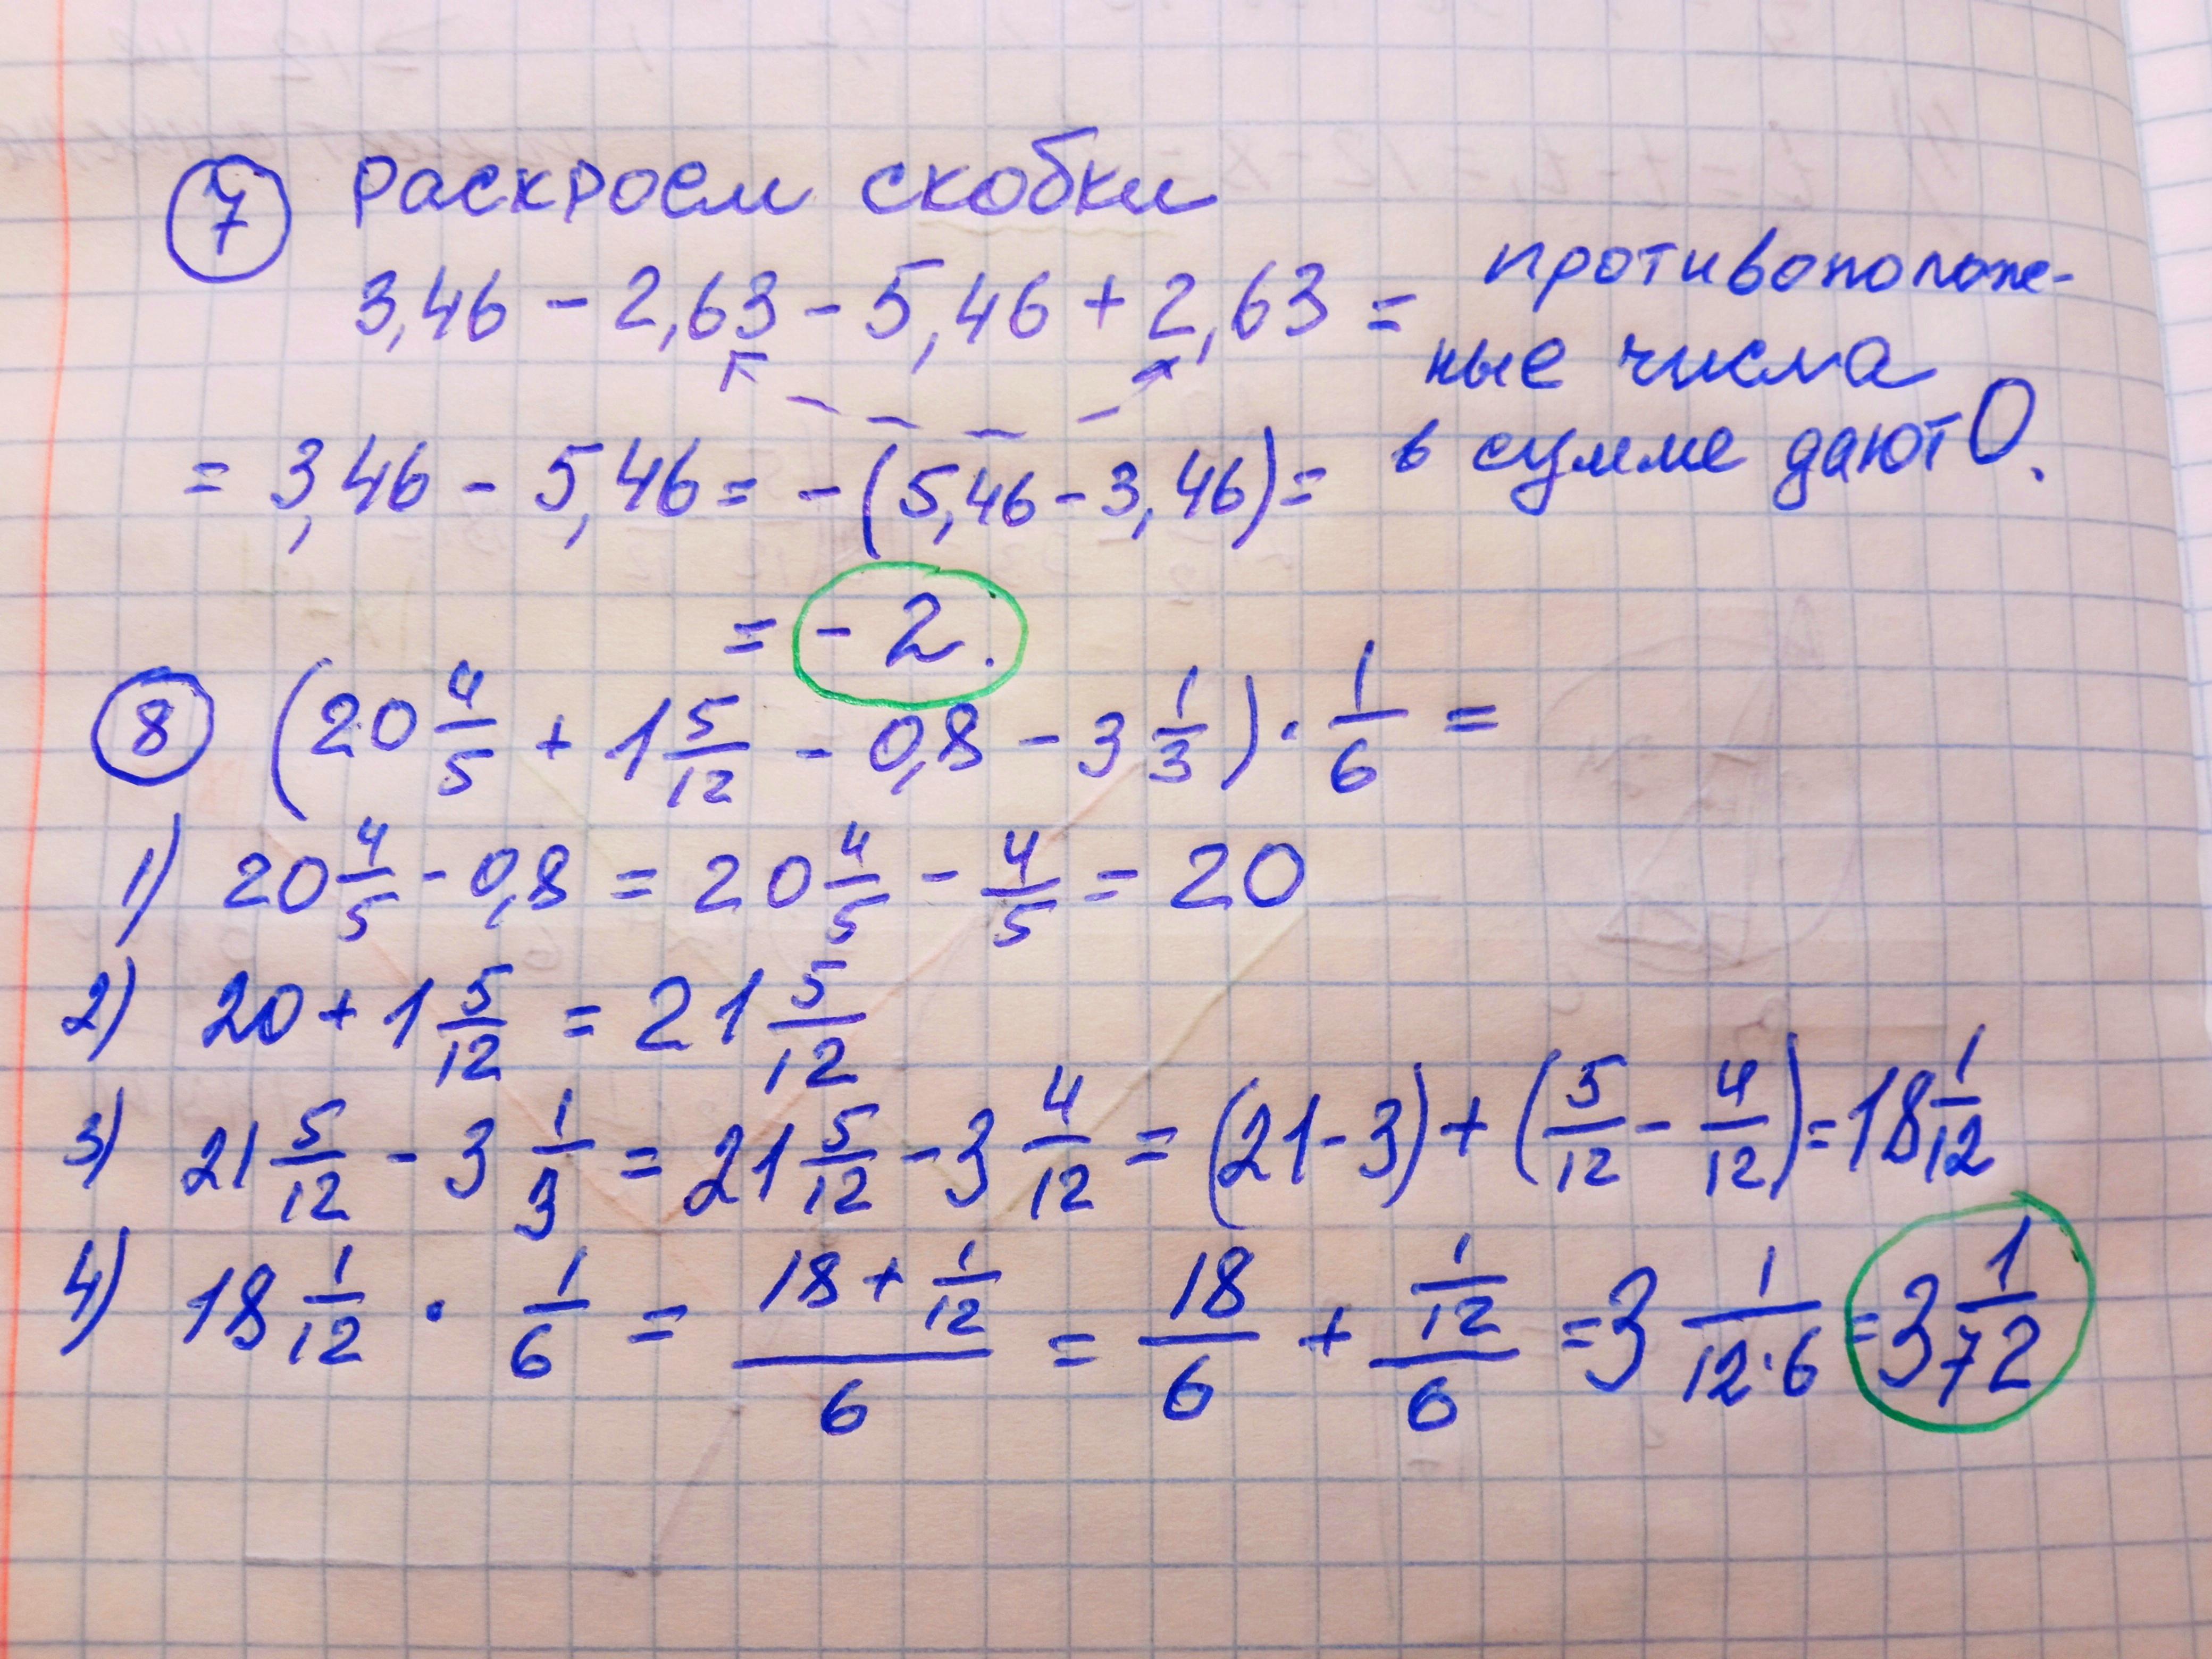 7 раскроем скобки
3,46 - 2,63 - 5,46 + 2,63 =
противополож-
ные числа
в сумме дают 0.
= 3,46 - 5,46 = -(5,46 - 3,46) =
= -2.
8 (20 4/5 + 1 5/12 - 0,8 - 3 1/3) · 1/6 =
1) 20 4/5 - 0,8 = 20 4/5 - 4/5 = 20
2) 20 + 1 5/12 = 21 5/12
3) 21 5/12 - 3 1/3 = 21 5/12 - 3 4/12 = (21 - 3) + (5/12 - 4/12) = 18 1/12
4) 18 1/12 · 1/6 = (18 + 1/12)/6 = 18/6 + (1/12)/6 = 3 1/(12·6) = 3 1/72